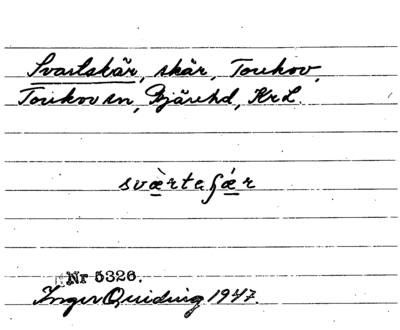 Svartskär, skär, Torekov,
Torekov sn, Bjärehd, Kr L.
svæ̀rteʃǽr
Nr 5326.
Inger Quiding 1947.